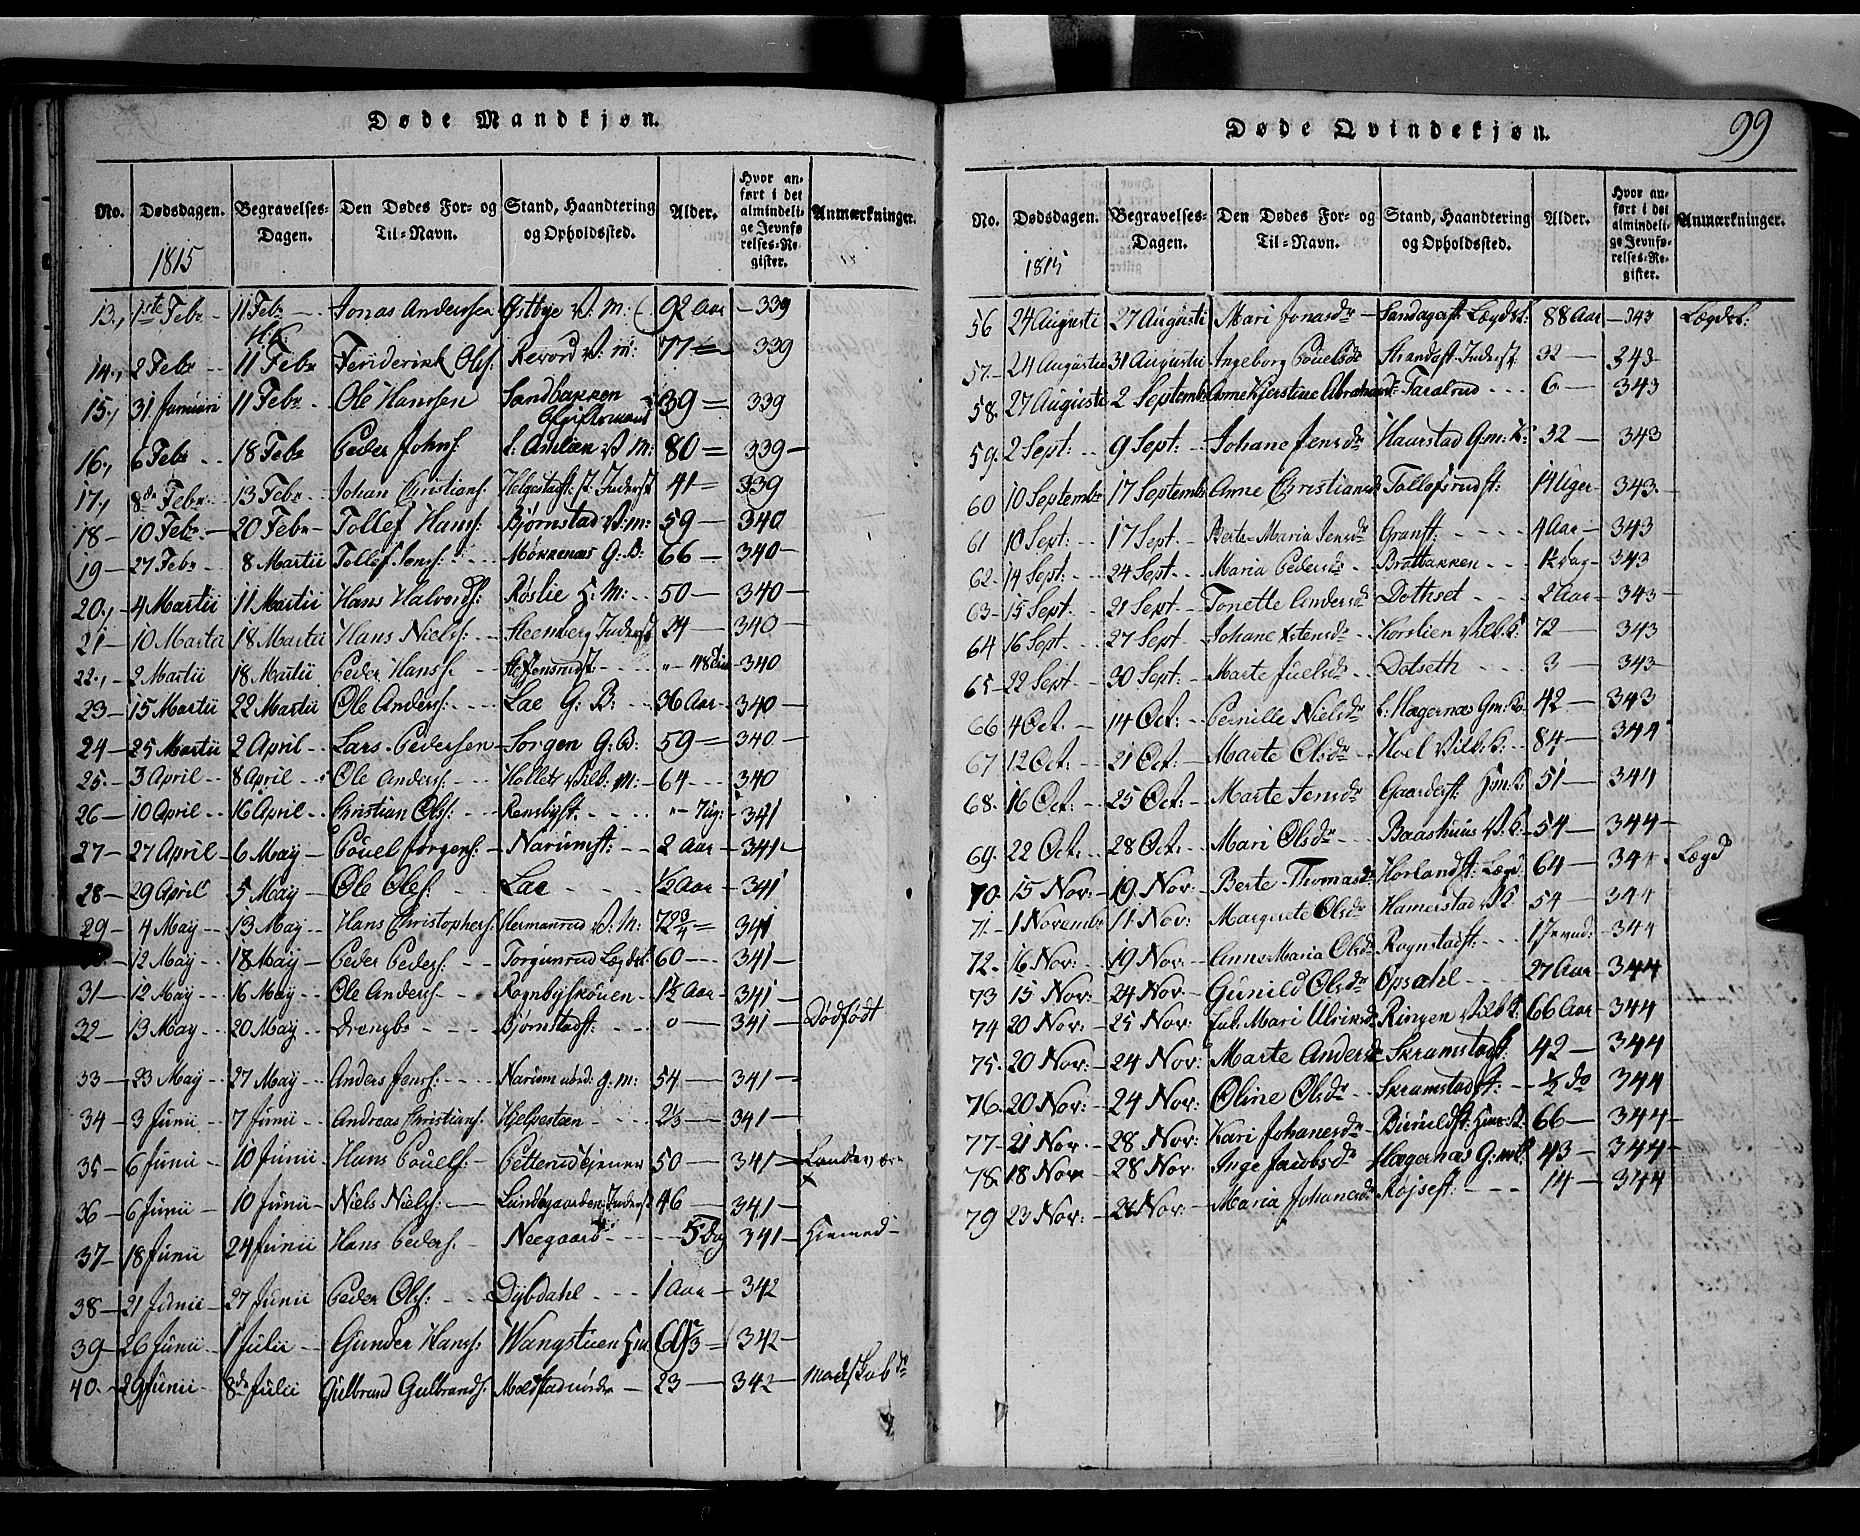 Døde Mandkjøn.
No. Dødsdagen. Begravelses-Dagen. Den Dødes For- og Til-Navn. Stand, Haandtering og Opholdssted. Alder. Hvor anført i det almindelige Jevnførelses-Register. Anmærkninger.
1815
13., 1ste Febr - 11 Febr - Jonas Anderssen Østbye V. M: 92 Aar - 339
14., 2 Febr - 11 Febr Frriderick Ols: Revord V: M: 77 = 339
15., 31 Januari 11 Febr - Ole Hanssen Sandbakken 39 = 339
16., 6 Febr - 18 Febr Peder Johns: V M: 80 = 339 -
17., 8de Febr - 13 Febr - Johan Christians: Helgestadst: Inderst 41 = 339
18 - 10 Febr - 20 Febr - Tollef Hans: Bjørnstad V: m: 59 - 340
19 - 27 Febr - 8 Martii Tollef Jens: - G: B: 66 - 340 -
20., - 4 Martii 11 Martii Hans Halvords: Røslie H: M: - 50 - 340 -
21 - 10 Martii 18 Martii Hans Niels: - Steenberg Inderst 24 - 340 -
22., - 2 Martii 18 Martii Peder Hanss. - Jensrudst - - 340
23 - 15 Martii 22 Martii Ole Anders: - Lae G: B: - 36 Aar - 340 -
24 - 25 Martii 2 April - Lars Pedersen - Sorgen G: B: 59 = 340 -
25. - 3 April - 8 April - Ole Anders: - M: - 64 - 340
26 - 10 April - 16 April - Christian Ols: - Rensbyst. - 7 ug: - 341
27 - 27 April - 6 May - Pouel Jørgens: - Narumst: - 2 Aar - 341 -
28 - 29 April 5 May - Ole Oles: - Lae - 1/2 Aar - 341
29 - 4 May - 13 May - Hans Christophers: Hermanrud V. M: 72 3/4 = 341
12 May - 18 May - Peder Peders: - Torgunrud Lægdsl: 60 - 341 -
31 - 12 May - 16 May - Ole Anders: - Rognbyskouen - 1 1/2 Aar - 341 -
32 - 13 May - 20 May - Drengb: - Bjørnstadst: - 0 - 341 - Dødfødt
33 - 23 May - 27 May - Anders Jens: - Narum nørd: G: m: 54 - 341 -
34 - 3 Junii - 7 Junii - Andreas Christians: Hjelpestæn - 2 1/3 - 341 -
35 - 6 Junii - 10 Junii - Hans Pouels: - 50 - 341 -
36 - 6 Junii - 10 Junii - Niels Niels: - Lundsgaarden: Inderst 46 - 341 -
37 - 18 Junii 24 Junii - Hans Peders: - Neegaard - 5 Dag 341 - Hiemmed -
38 - 21 Junii - 27 Junii Peder Ols: - Dybdahl - 1 Aar - 342
39 - 26 Junii 1 Julii - Gunder Hans: - Wangstuen 342 -
40. - 29 Junii - 8de Julii Gulbrand Gulbrands: - 23 - 342 -
Døde Qvindekjøn.
99
No. Dødsdagen. Begravelses-Dagen. Den Dødes For- og Til-Navn. Stand, Haandtering og Opholdssted. Alder. Hvor anført i det almindelige Jevnførelses-Register. Anmærkninger.
1815
56 24 Augusti 27 Augusti Mari Jonasdr - Lægdsl: 88 Aar - 343 Lægdsl:
57. - 24 Augusti 31 Augusti Ingeborg Pouelsdr Strandest: Inderst 32 - 343
58. 27 Augusti 2 Septembr Anne Kjerstine Abrahamd: Taralrud - 6 - 343
59. 2 Sept: - 9 Sept: - Johane Jensdr Haarstad G: m: K: 32 - 343
60 10 Septembr 17 Septembr Anne Christiansdr Tollefsrudst: 14 Uger - 343 -
61 10 Sept: - 17 Sept. - Berte Maria Jensdr Granst: - 4 Aar - 343
62. 14 Sept: - 24 Sept - Maria Pedersdr - Brattbakken - 343
63 - 15 Sept. - 21 Sept - Tonette Andersdr Dothset - 2 Aar - 343 -
64 16 Sept - 27 Sept Johane 72 - 343
65 - 22 Sept - 30 Sept: - Marte Juelsdr - Dotseth - 3 - 343 -
66 4 Oct. - 14 Oct: - Pernille Nielsdr Hægernæs 42 - 343
67 12 Oct: - 21 Oct: - Marte Olsdr - Hoel 84 - 344
68. 16 Oct: - 25 Oct: - Marte Jensdr Gaarderst: 51 - 344
69. 22 Oct: - 28 Oct: - Mari Olsdr - Baashuus V: K: - 54 - 344 -
70. 15 Nor: - 19. Nor - Berte Thomasdr Horlandst: Lægd 64 - 344 - Lægd
71. - 1 Novembr - 11 Nov: - Margrete Olsdr Hamerstad V K 54 - 344
72. 16 Nov: - 19 Nov: - Anne Maria Olsdr Rognstadst: - 344
73 15 Nov: - 24 Nov - Gunild Olsdr Opsahl - 27 Aar - 344
74 20 Nov: - 25 Nov: Mari Ulriksdr Ringen 66 Aar - 344
75. 20 Nov: - 24 Nov: - Marte Andersdr Skramstadst: 42 - 344
76. 20 Nov: - 24 Nov: Oline Olsdr - Skramstadst: - 1/2 do 344
77 - 21 Nov - 28 Nov: Kari Johanesdr - 66 - 344 -
78. 18 Nov 28 Nov. Inge Jacobsdr Hægernæs 43 - 344 -
79 23 Nov: - 28 Nov: - Maria Johanesdr Røjsest: - 14 - 344